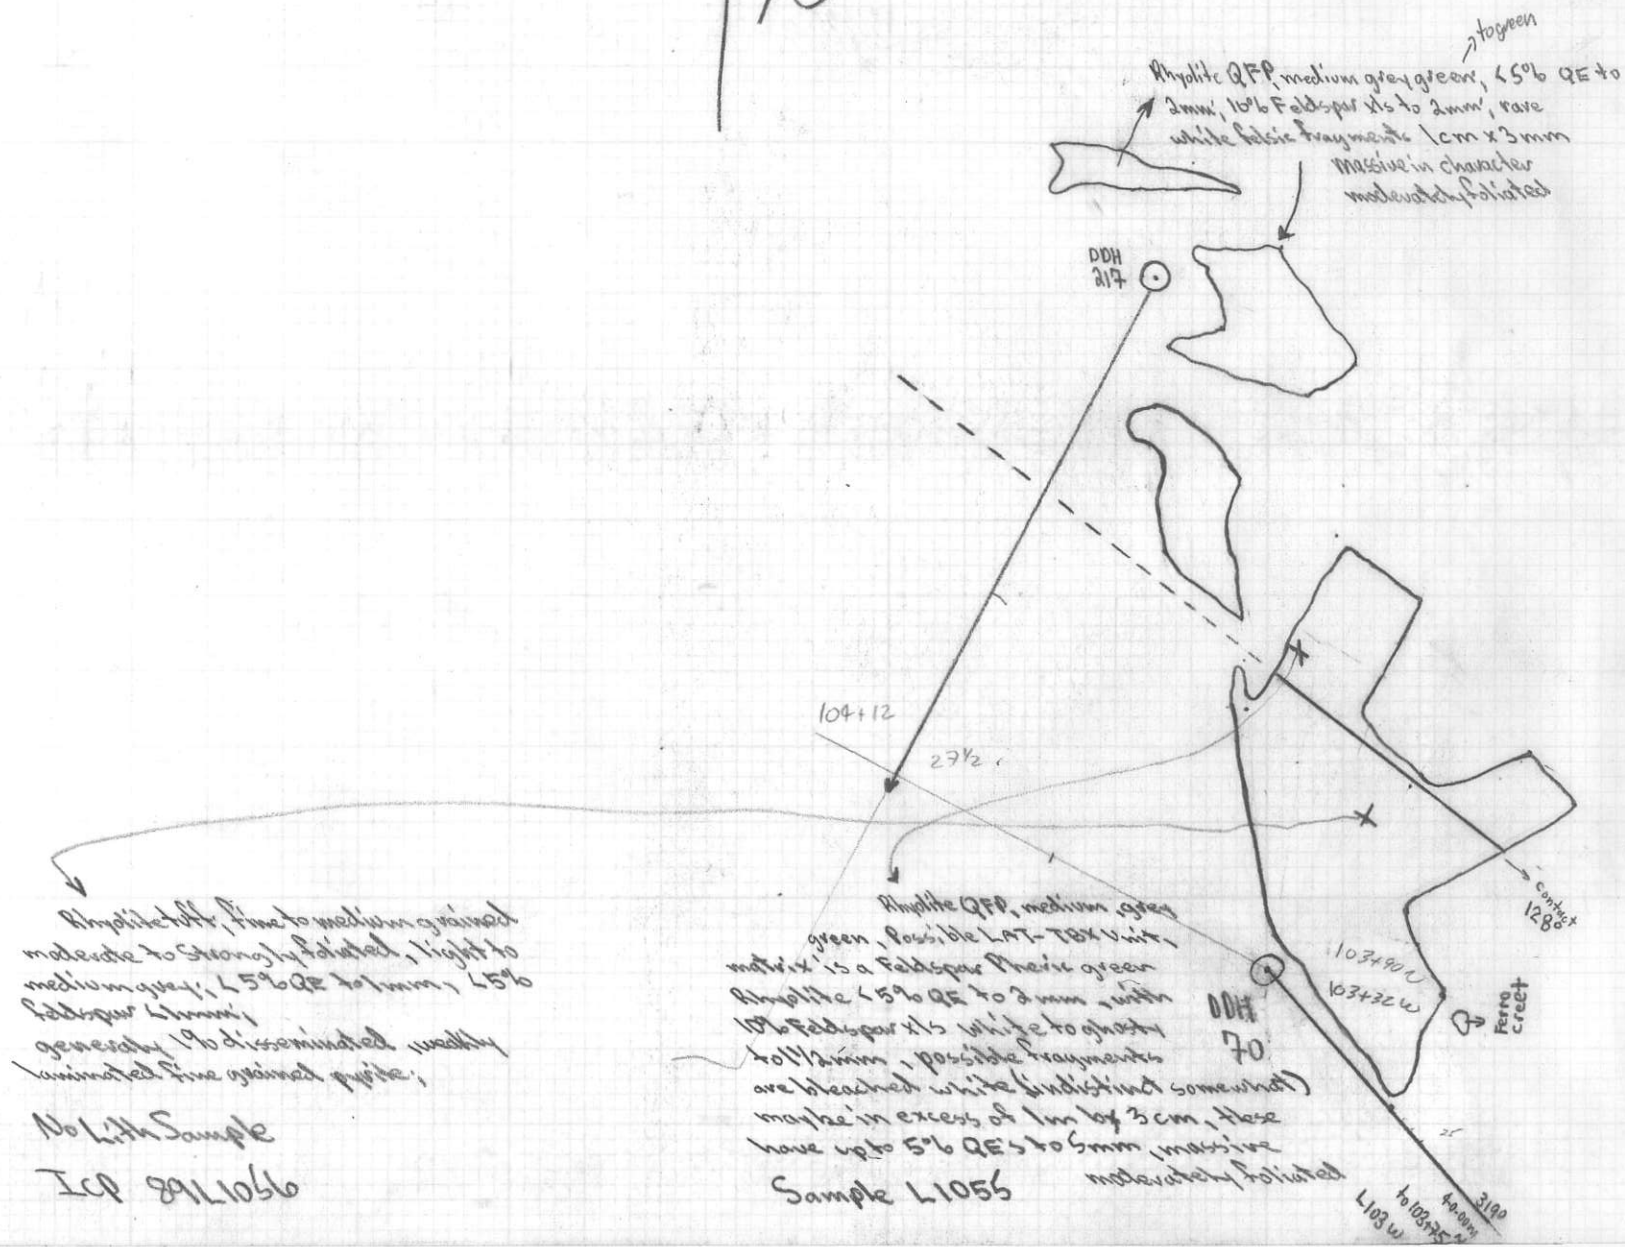 to green
Rhyolite QFP, medium grey green, <5% QE to
2mm, 10% Feldspar xls to 2mm, rare
white felsic fragments 1cm x 3mm
Massive in character
moderately foliated
DDH
217
104+12
27½
contact
128°
103+90 N
103+32 W
Ferro
creet
DDH
70
25
3190
40.00m
to 103+75 N
L103 W
Rhyolite tuff, fine to medium grained
moderate to strongly foliated, light to
medium grey, <5% QE to 1mm, <5%
feldspar <1mm,
generally 1% disseminated, weakly
laminated fine grained pyrite,
No Lith Sample
Icp 89L1056
Rhyolite QFP, medium grey
green, Possible LAT-TBX Unit,
matrix is a Feldspar Pheric green
Rhyolite <5% QE to 2mm, with
10% Feldspar xls white to ghosty
to 1½mm, possible fragments
are bleached white (indistinct somewhat)
maybe in excess of 1m by 3cm, these
have up to 5% QE's to 5mm, massive
moderately foliated
Sample L1055